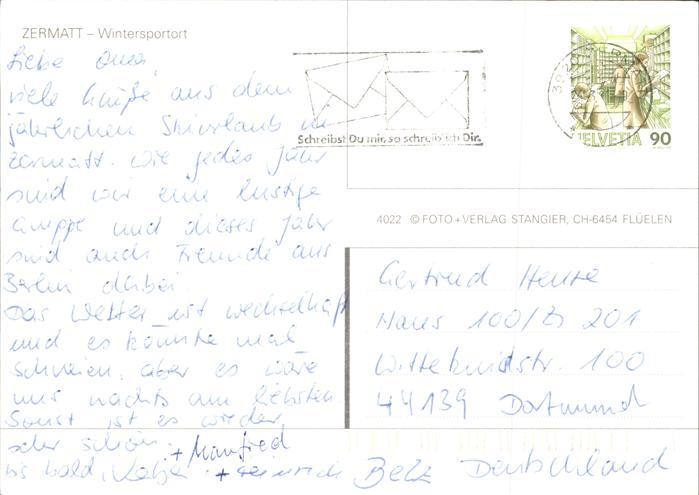 ZERMATT – Wintersportort
Liebe Oma,
viele Grüße aus dem
jährlichen Skiurlaub in
Zermatt. Wie jedes Jahr
sind wir eine lustige
Gruppe und dieses Jahr
sind auch Freunde aus
Berlin dabei.
Das Wetter ist wechselhaft
und es könnte mal
schneien, aber es wäre
uns nachts am liebsten.
Sonst ist es wieder
sehr schön.
Bis bald, Katja + Manfred
+ Heinrich
Schreibst Du mir, so schreib ich Dir.
HELVETIA 90
4022 © FOTO + VERLAG STANGIER, CH-6454 FLÜELEN
Gertrud
Haus 100/Zi 201
Wittekindstr. 100
44139 Dortmund
Deutschland